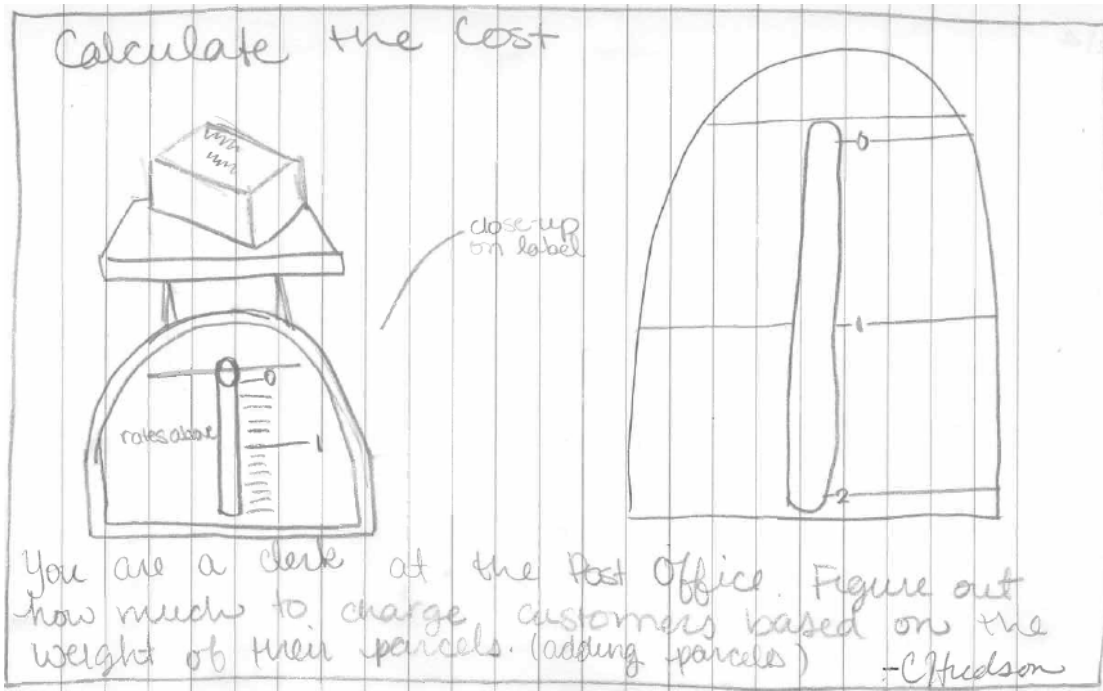 Calculate the Cost
close-up
on label
0
1
2
0
1
You are a clerk at the Post Office. Figure out
how much to charge customers based on the
weight of their parcels. (adding parcels)
-CHudson